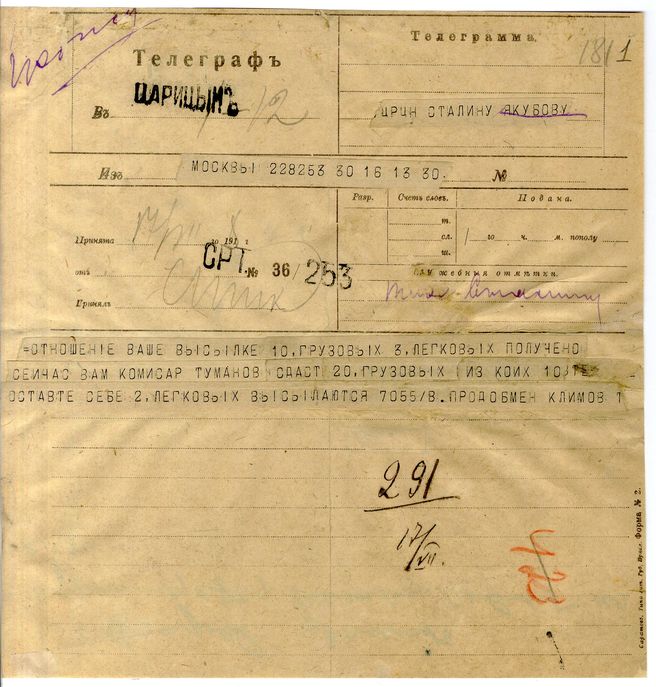 Телеграфъ
Телеграмма.
1811
Въ ЦАРИЦЫНЪ
12
ЦРИЦН СТАЛИНУ ЯКУБОВУ
Изъ МОСКВЫ 228253 30 16 13 30.
№
Принята 17/VII го 191 8 г.
отъ
Принялъ
СРТ. № 36 253
Разр.
Счетъ словъ.
т.
сл.
ш.
Подана.
го ч. м. пополу
Служебныя отмѣтки.
=ОТНОШЕНІЕ ВАШЕ ВЫСЫЛКЕ 10, ГРУЗОВЫХ 3, ЛЕГКОВЫХ ПОЛУЧЕНО
СЕИЧАС ВАМ КОМИСАР ТУМАНОВ СДАСТ 20, ГРУЗОВЫХ (ИЗ КОИХ 10
ОСТАВТЕ СЕБЕ 2, ЛЕГКОВЫХ ВЫСЫЛАЮТСЯ 7055/В. ПРОДОБМЕН КЛИМОВ
291
17/VII
423
Форма № 2.